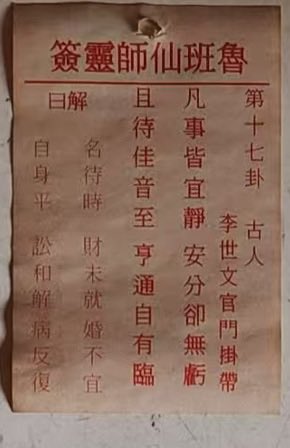 魯班仙師靈簽
第十七卦　古人
李世文官門掛帶
凡事皆宜靜　安分卻無虧
且待佳音至　亨通自有臨
解曰
名待時　財未就　婚不宜
自身平　訟和解　病反復